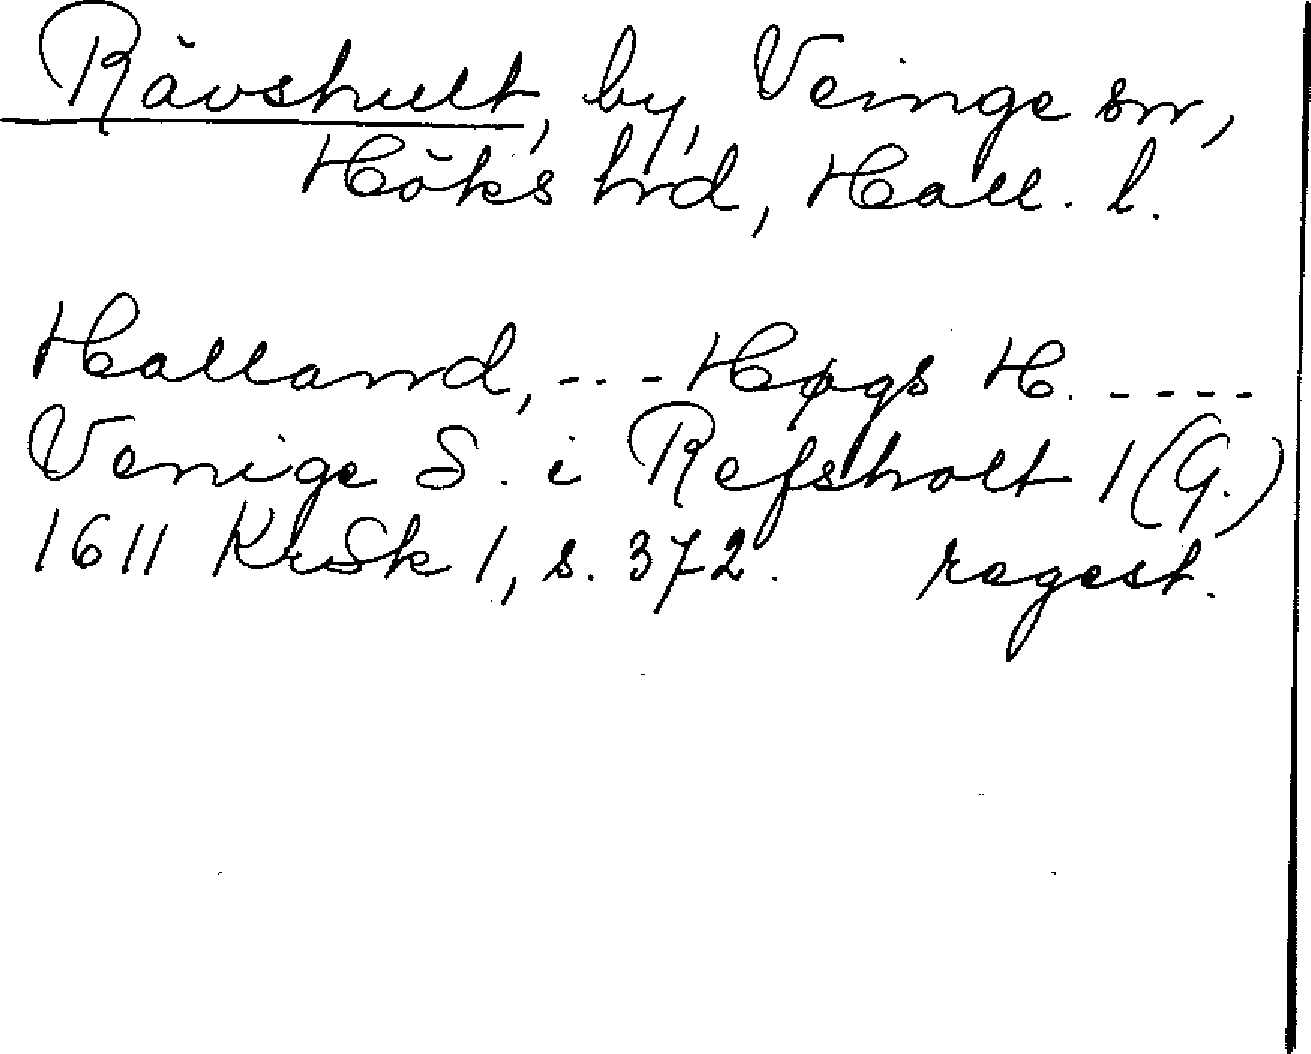 Rävshult, by, Veinge sn,
Höks hrd, Hall. l.
Halland, --- Høgs H. ----
Venige S. i Refsholt 1 (G.)
1611 KrSk 1, s. 372. regest.